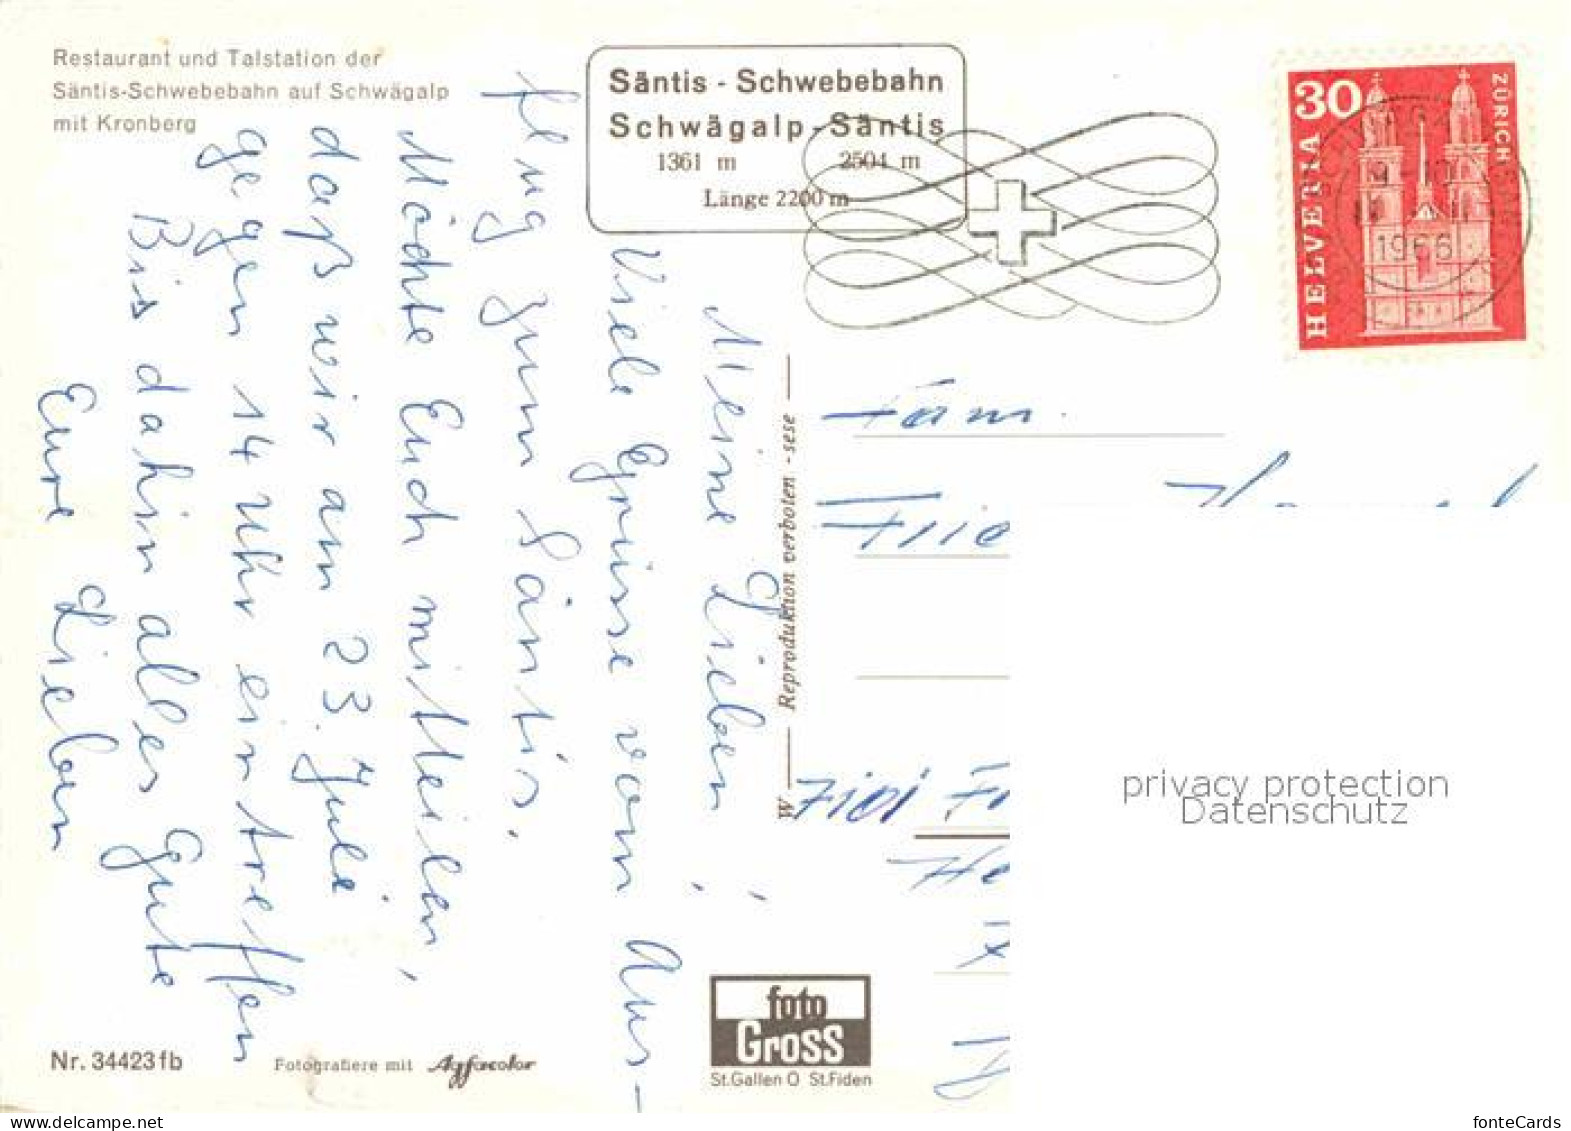 Restaurant und Talstation der
Säntis-Schwebebahn auf Schwägalp
mit Kronberg
Säntis - Schwebebahn
Schwägalp - Säntis
1361 m 2504 m
Länge 2200 m
30
HELVETIA
ZÜRICH
1966
Meine Lieben,
Viele Grüsse vom Aus-
flug zum Säntis.
Möchte Euch mitteilen,
daß wir am 23. Juli
gegen 14 Uhr eintreffen
Bis dahin alles Gute
Eure Lieben
W Reproduktion verboten - sese
Fam.
7101
privacy protection
Datenschutz
foto
Gross
St.Gallen O St.Fiden
Nr. 34423fb
Fotografiere mit Agfacolor
www.delcampe.net
fonteCards